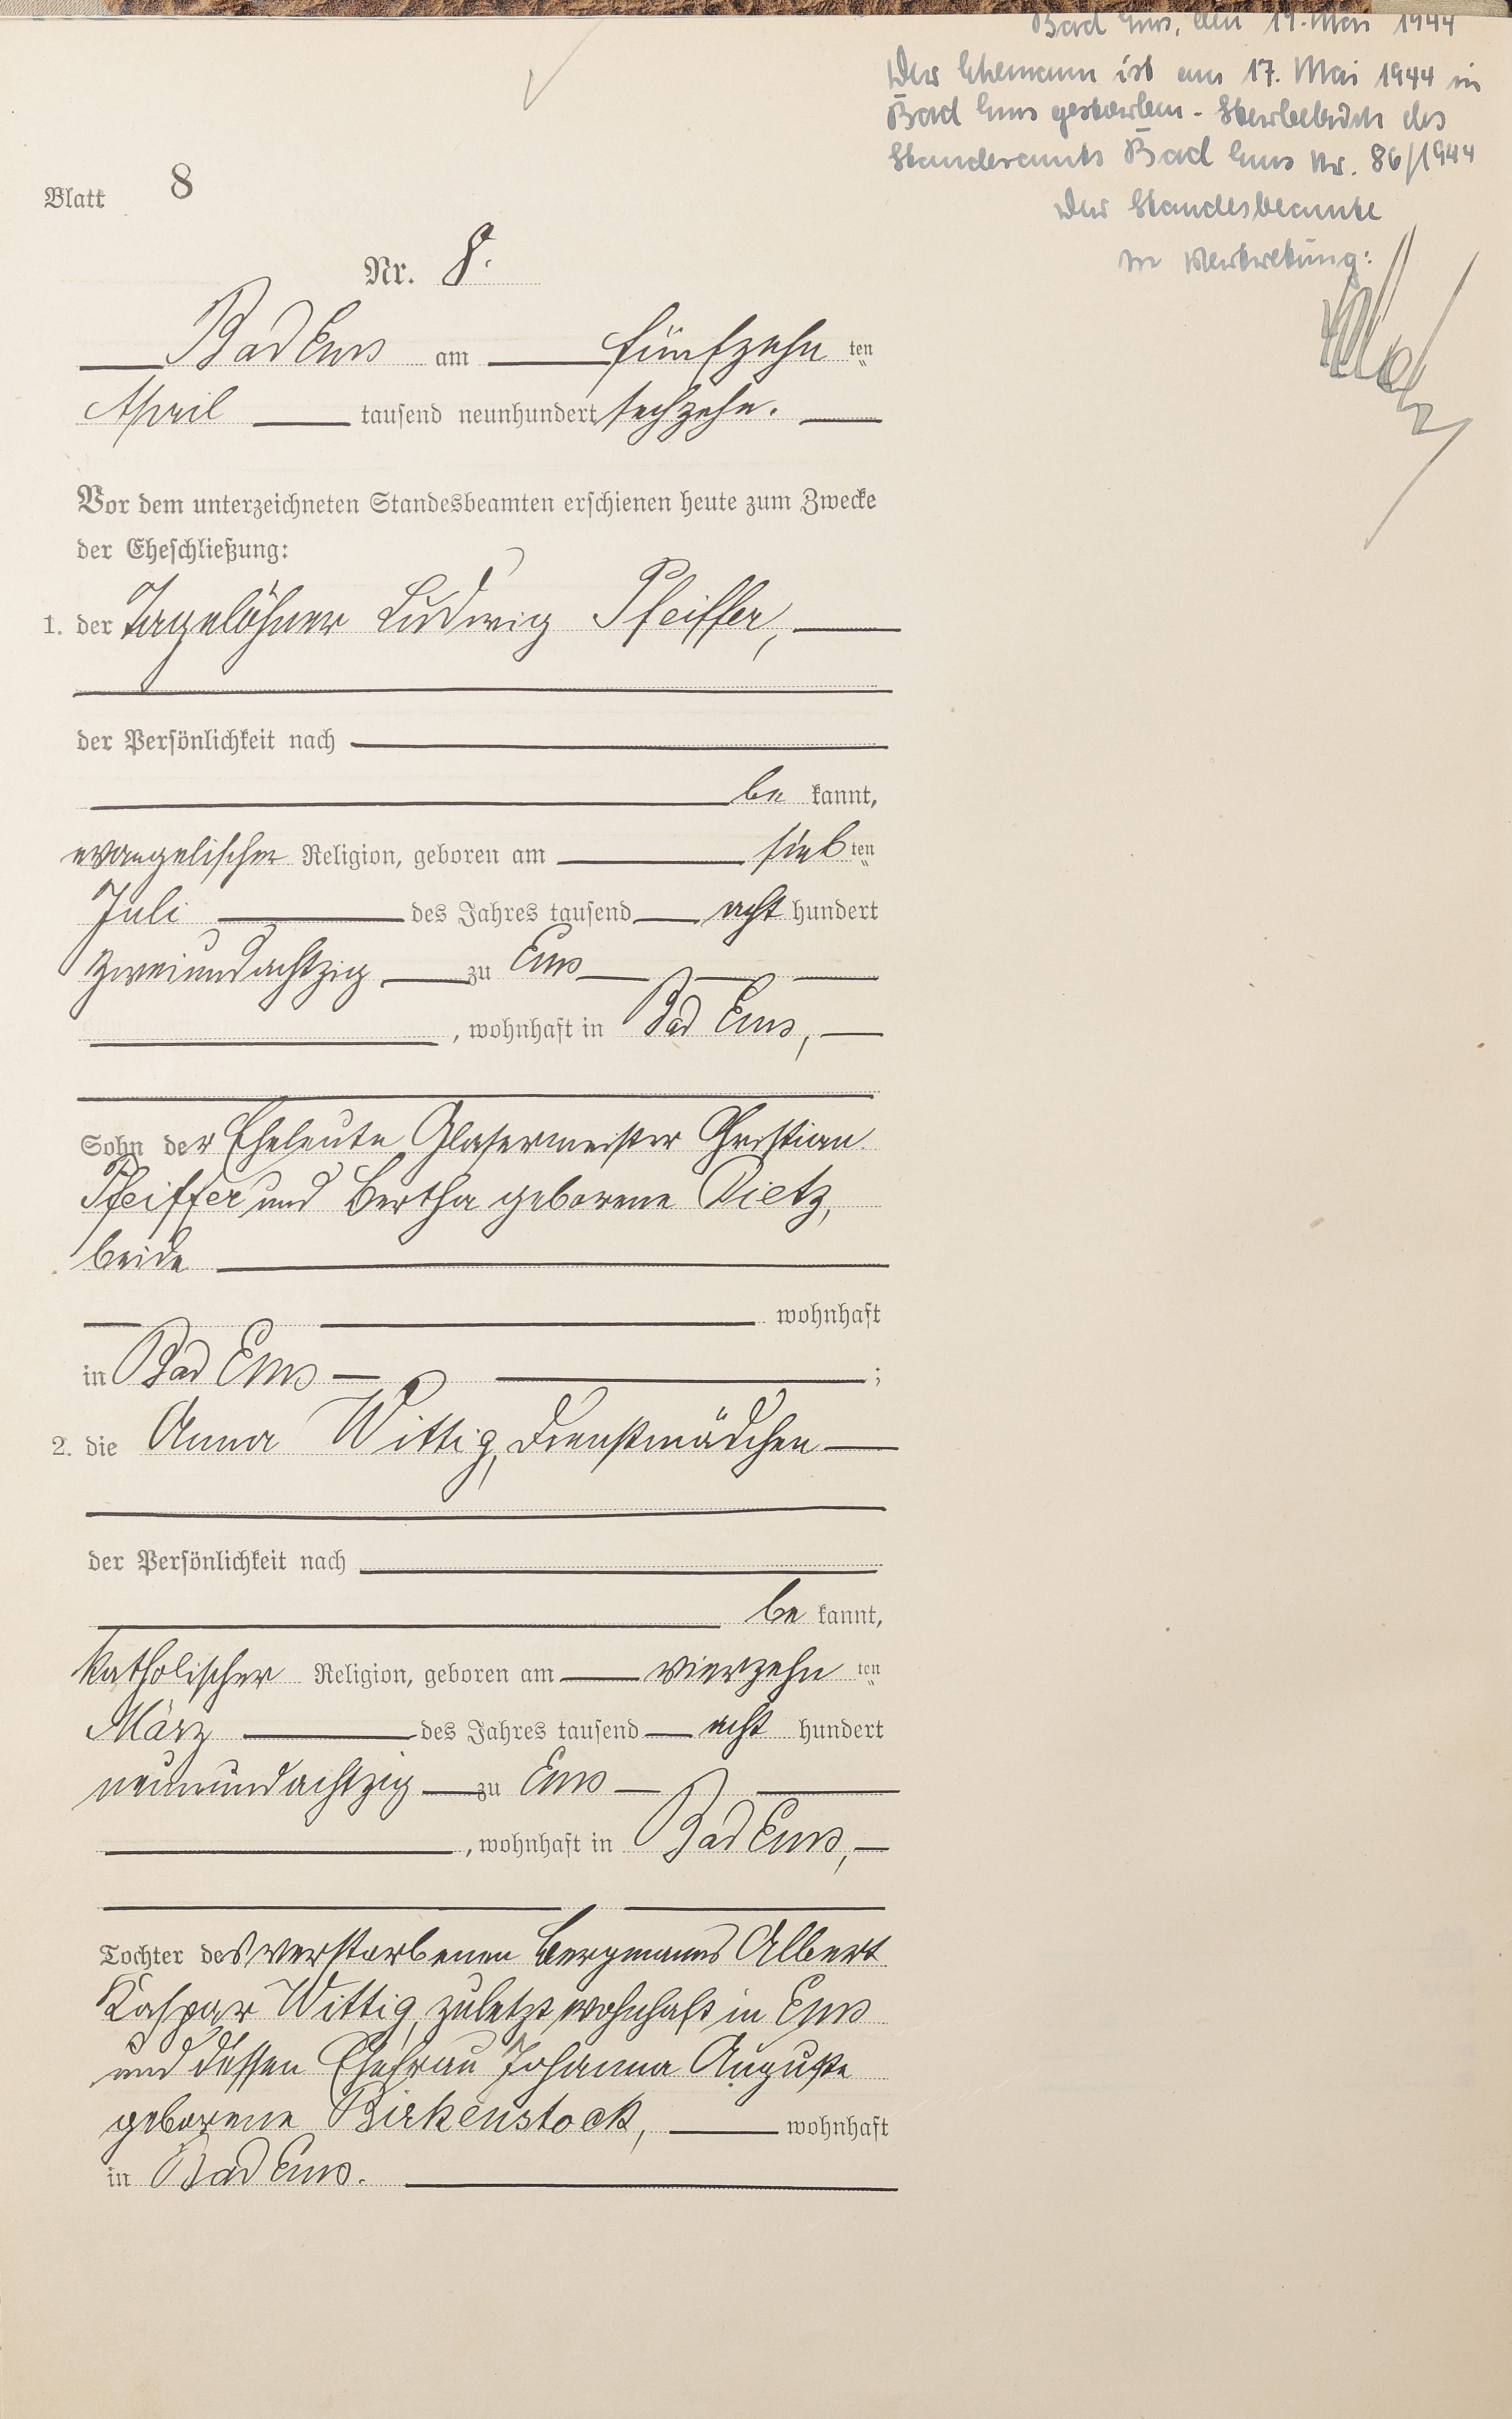 Bad Ems, den 19. Mai 1944
Der Ehemann ist am 17. Mai 1944 in
Bad Ems gestorben - Sterbebuch des
Standesamts Bad Ems Nr. 86/1944
Der Standesbeamte
In Vertretung:
Blatt 8
Nr. 8.
Bad Ems am fünfzehn ten
April tausend neunhundert sechzehn.
Vor dem unterzeichneten Standesbeamten erschienen heute zum Zwecke
der Eheschließung:
1. der Tagelöhner Ludwig Pfeiffer,
der Persönlichkeit nach
be kannt,
evangelischer Religion, geboren am sieb ten
Juli des Jahres tausend acht hundert
zweiundachtzig zu Ems
, wohnhaft in Bad Ems,
Sohn der Eheleute Glasermeister Christian
Pfeiffer und Bertha geborene Dietz,
beide
wohnhaft
in Bad Ems ;
2. die Anna Wittig, Dienstmädchen
der Persönlichkeit nach
be kannt,
katholischer Religion, geboren am vierzehn ten
März des Jahres tausend acht hundert
neunundachtzig zu Ems
, wohnhaft in Bad Ems,
Tochter des verstorbenen Bergmanns Albert
Kaspar Wittig, zuletzt wohnhaft in Ems
und dessen Ehefrau Johanna Auguste
geborene Birkenstock, wohnhaft
in Bad Ems.